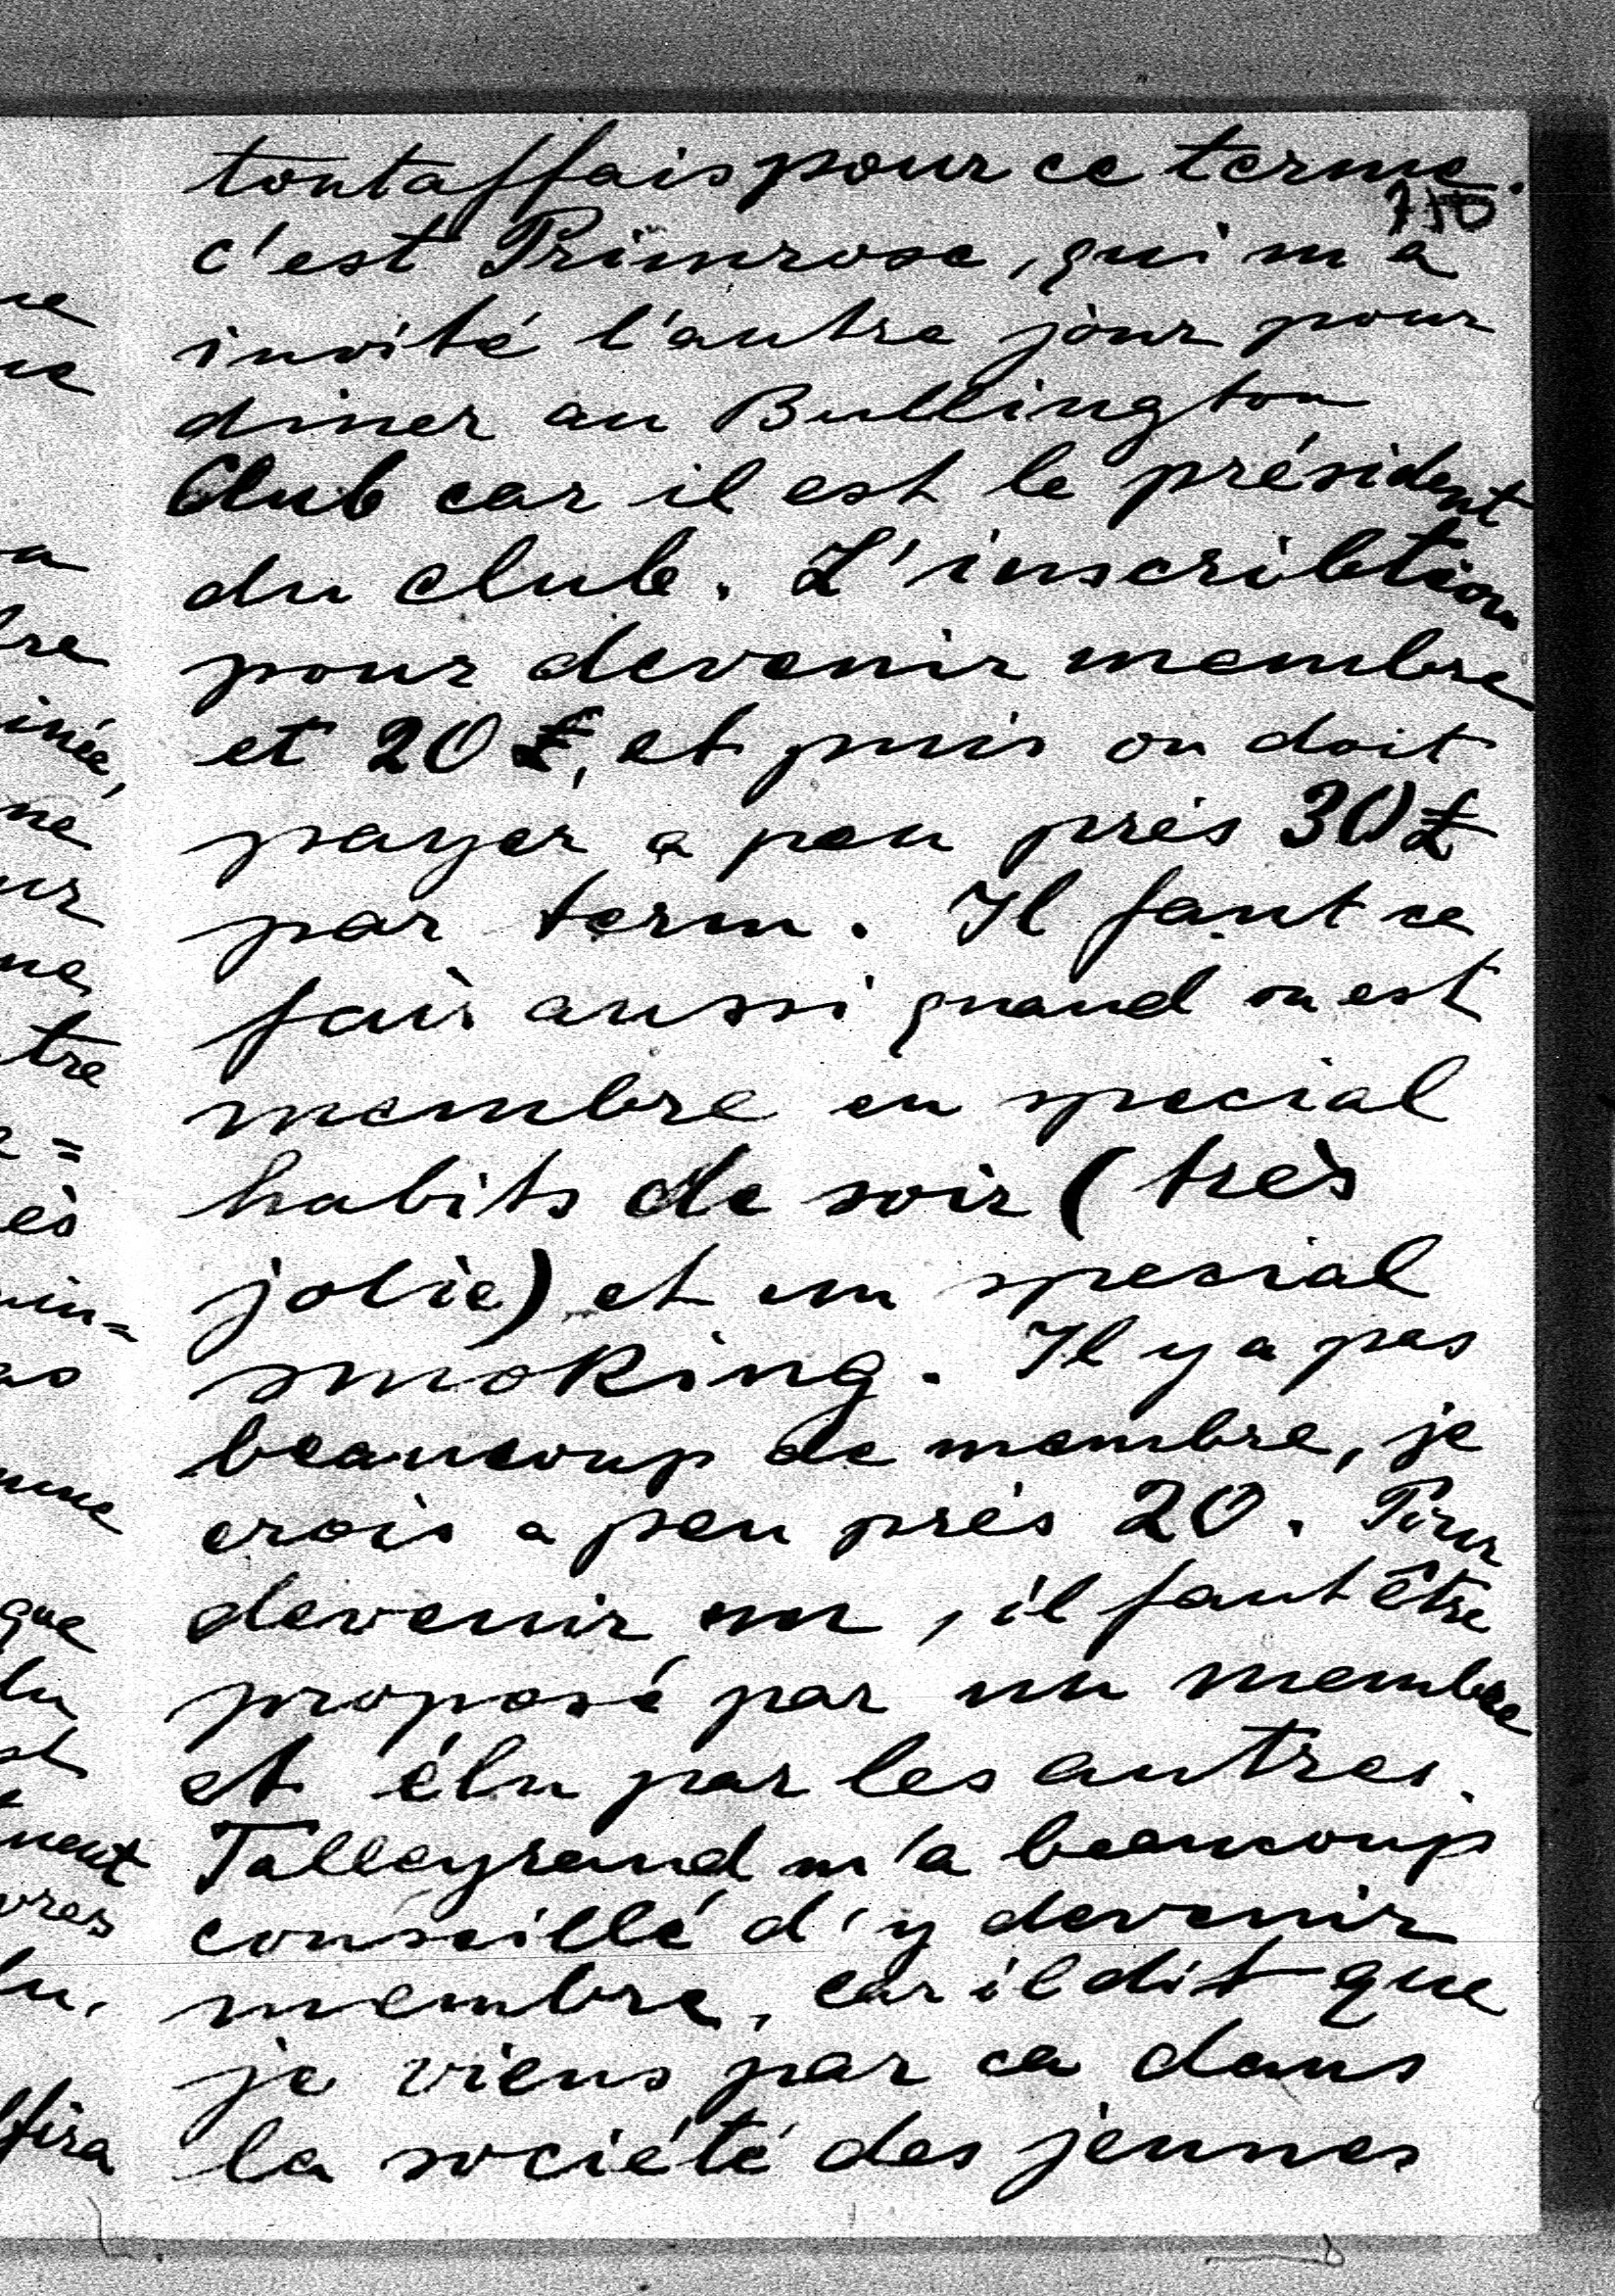 toutaffais pour ce terme.
c'est Primrose, qui m'a
invité l'autre jour pour
diner au Bullington
Club car il est le président
du club. L'inscribtion
pour devenir membre
et 20 £, et puis on doit
payer a peu près 30 £
par term. Il faut ce
fair aussi quand on est
membre en special
habits de soir (très
jolie) et un special
smoking. Il y a pas
beaucoup de membre, je
crois a peu près 20. Pour
devenir un, il faut être
proposé par un membre
et élu par les autres.
Talleyrand m'a beaucoup
conseillé d'y devenir
membre, car il dit que
je viens par ca dans
la société des jeunes